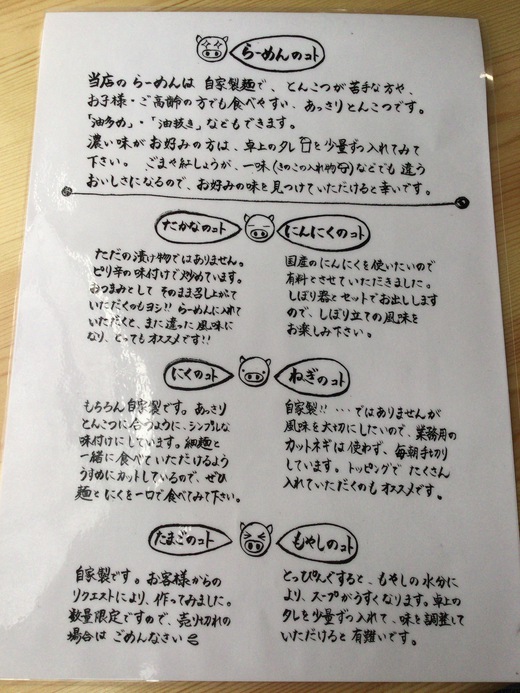 らーめんのコト
当店の らーめんは 自家製麺で、とんこつが苦手な方や、
お子様・ご高齢の方でも食べやすい、あっさりとんこつです。
「油多め」・「油抜き」などもできます。
濃い味がお好みの方は、卓上のタレを少量ずつ入れてみて
下さい。ごまや紅しょうが、一味(きのこの入れ物)などでも違う
おいしさになるので、お好みの味を見つけていただけると幸いです。
たかなのコト
ただの漬け物ではありません。
ピリ辛の味付けで炒めています。
おつまみとして そのまま召し上がて
いただくのもヨシ!! らーめんに入れて
いただくと、また違った風味に
なり、とってもオススメです!!
にんにくのコト
国産のにんにくを使いたいので
有料とさせていただきました。
しぼり器とセットでお出しします
ので、しぼり立ての風味を
お楽しみ下さい。
にくのコト
もちろん自家製です。あっさり
とんこつに合うように、シンプルな
味付けにしています。細麺と
一緒に食べていただけるよう
うすめにカットしているので、ぜひ
麺とにくを一口で食べてみて下さい。
ねぎのコト
自家製!!…ではありませんが
風味を大切にしたいので、業務用の
カットネギは使わず、毎朝手切り
しています。トッピングでたくさん
入れていただくのもオススメです。
たまごのコト
自家製です。お客様からの
リクエストにより、作ってみました。
数量限定ですので、売り切れの
場合は ごめんなさい
もやしのコト
とっぴんぐすると、もやしの水分に
より、スープがうすくなります。卓上の
タレを少量ずつ入れて、味を調整して
いただけると 有難いです。